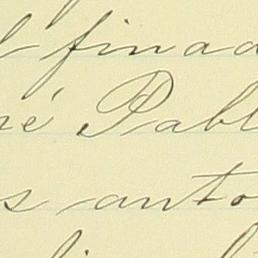 l finad
né Pabl
s anto